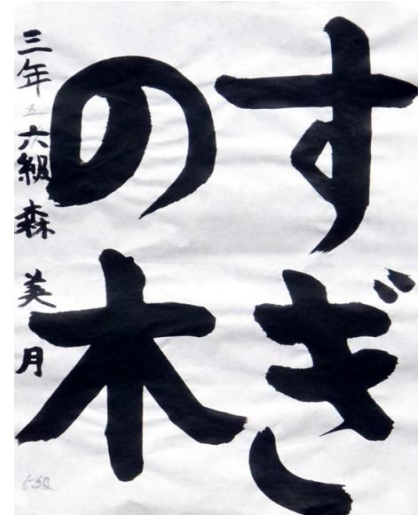 すぎ
の木
三年 五 六級 森 美月
六級